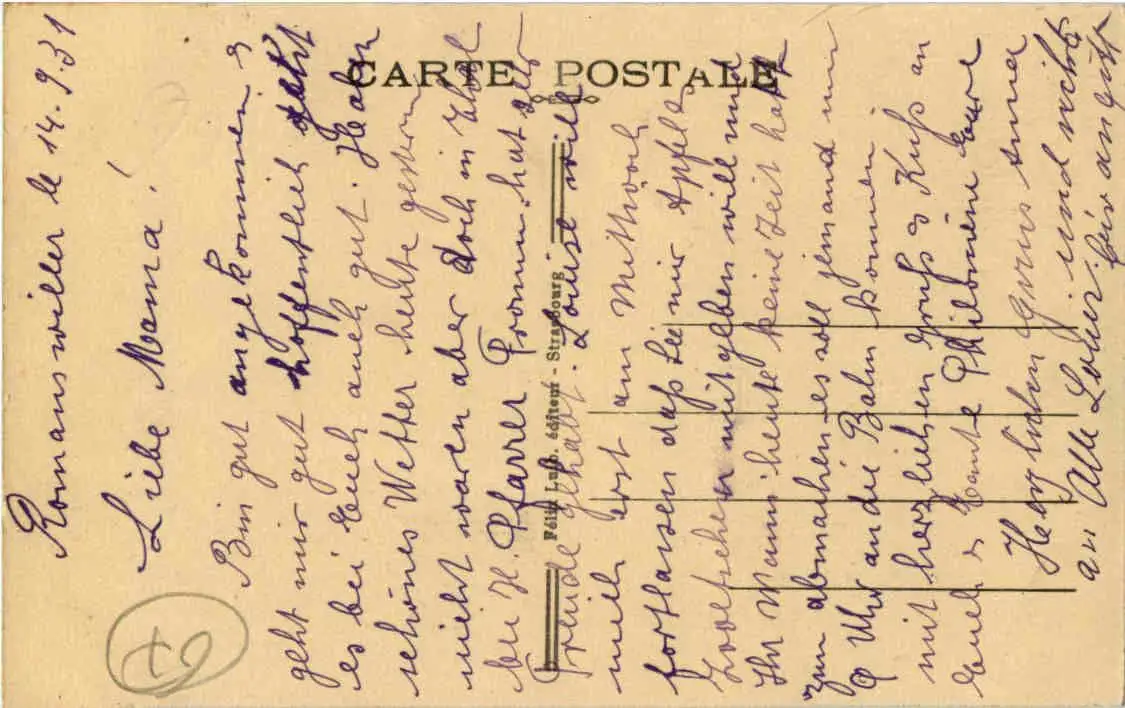 CARTE POSTALE
Félix Luib, éditeur - Strasbourg
Romanswiller le 14.9.31
Liebe Mama!
Bin gut angekommen es
geht mir gut hoffentlich geht
es bei Euch auch gut. Haben
schönes Wetter heute gestern
nicht waren aber doch in
bei H. Pfarrer Fromm hat
Freude gehabt. Louise will
mich erst am Mittwoch
fortlassen daß sie mir Apfel
Zwetschen mitgeben will
Ihr Mann heute keine Zeit hat
zum abmachen es soll jemand um
9 Uhr an die Bahn kommen
mit herzlichen Gruß & Kuß an
Euch & Tante Philomène Eure
Herzlichen Gruss
an Alle Louise und
für an gute